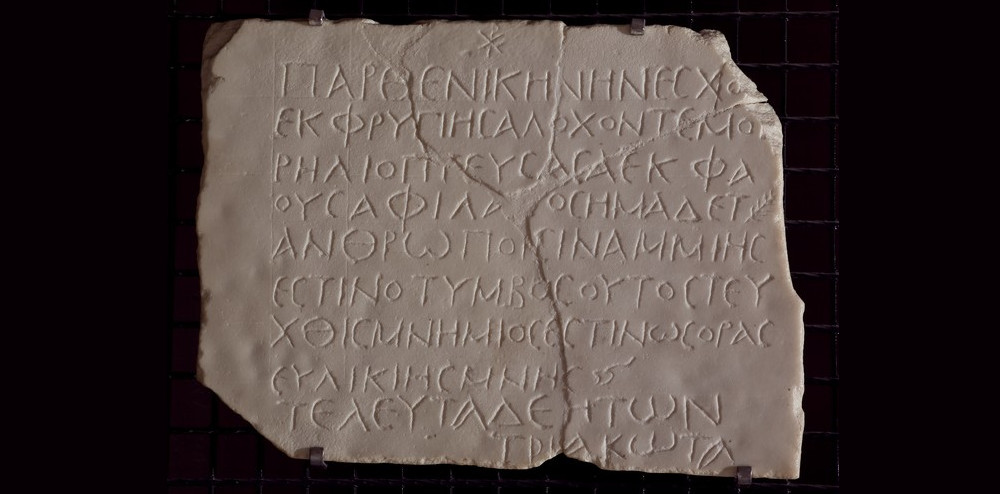 ΠΑΡΘΕΝΙΚΗΝΗΝΕϹΧΟ
ΕΚΦΡΥΓΙΗϹΑΛΟΧΟΝΤΕΜΟ
ΕΚ ΦΑ
ΟΥϹΑΦΙΛΑ ΟϹΗΜΑΔΕΤ
ΑΝΘΡΩΠΟΙϹΙΝΑΜΜΙΗϹ
ΕϹΤΙΝΟΤΥΜΒΟϹΟΥΤΟϹΤΕΥ
ΧΘΙϹΜΝΗΜΙΟϹΕϹΤΙΝΩϹΟΡΑϹ
ϹΥΛΙΚΙΗϹΜΝΗϹ
ΤΕΛΕΥΤΑΔΕΗΤΩΝ
ΤΡΙΑΚΩΤΑ